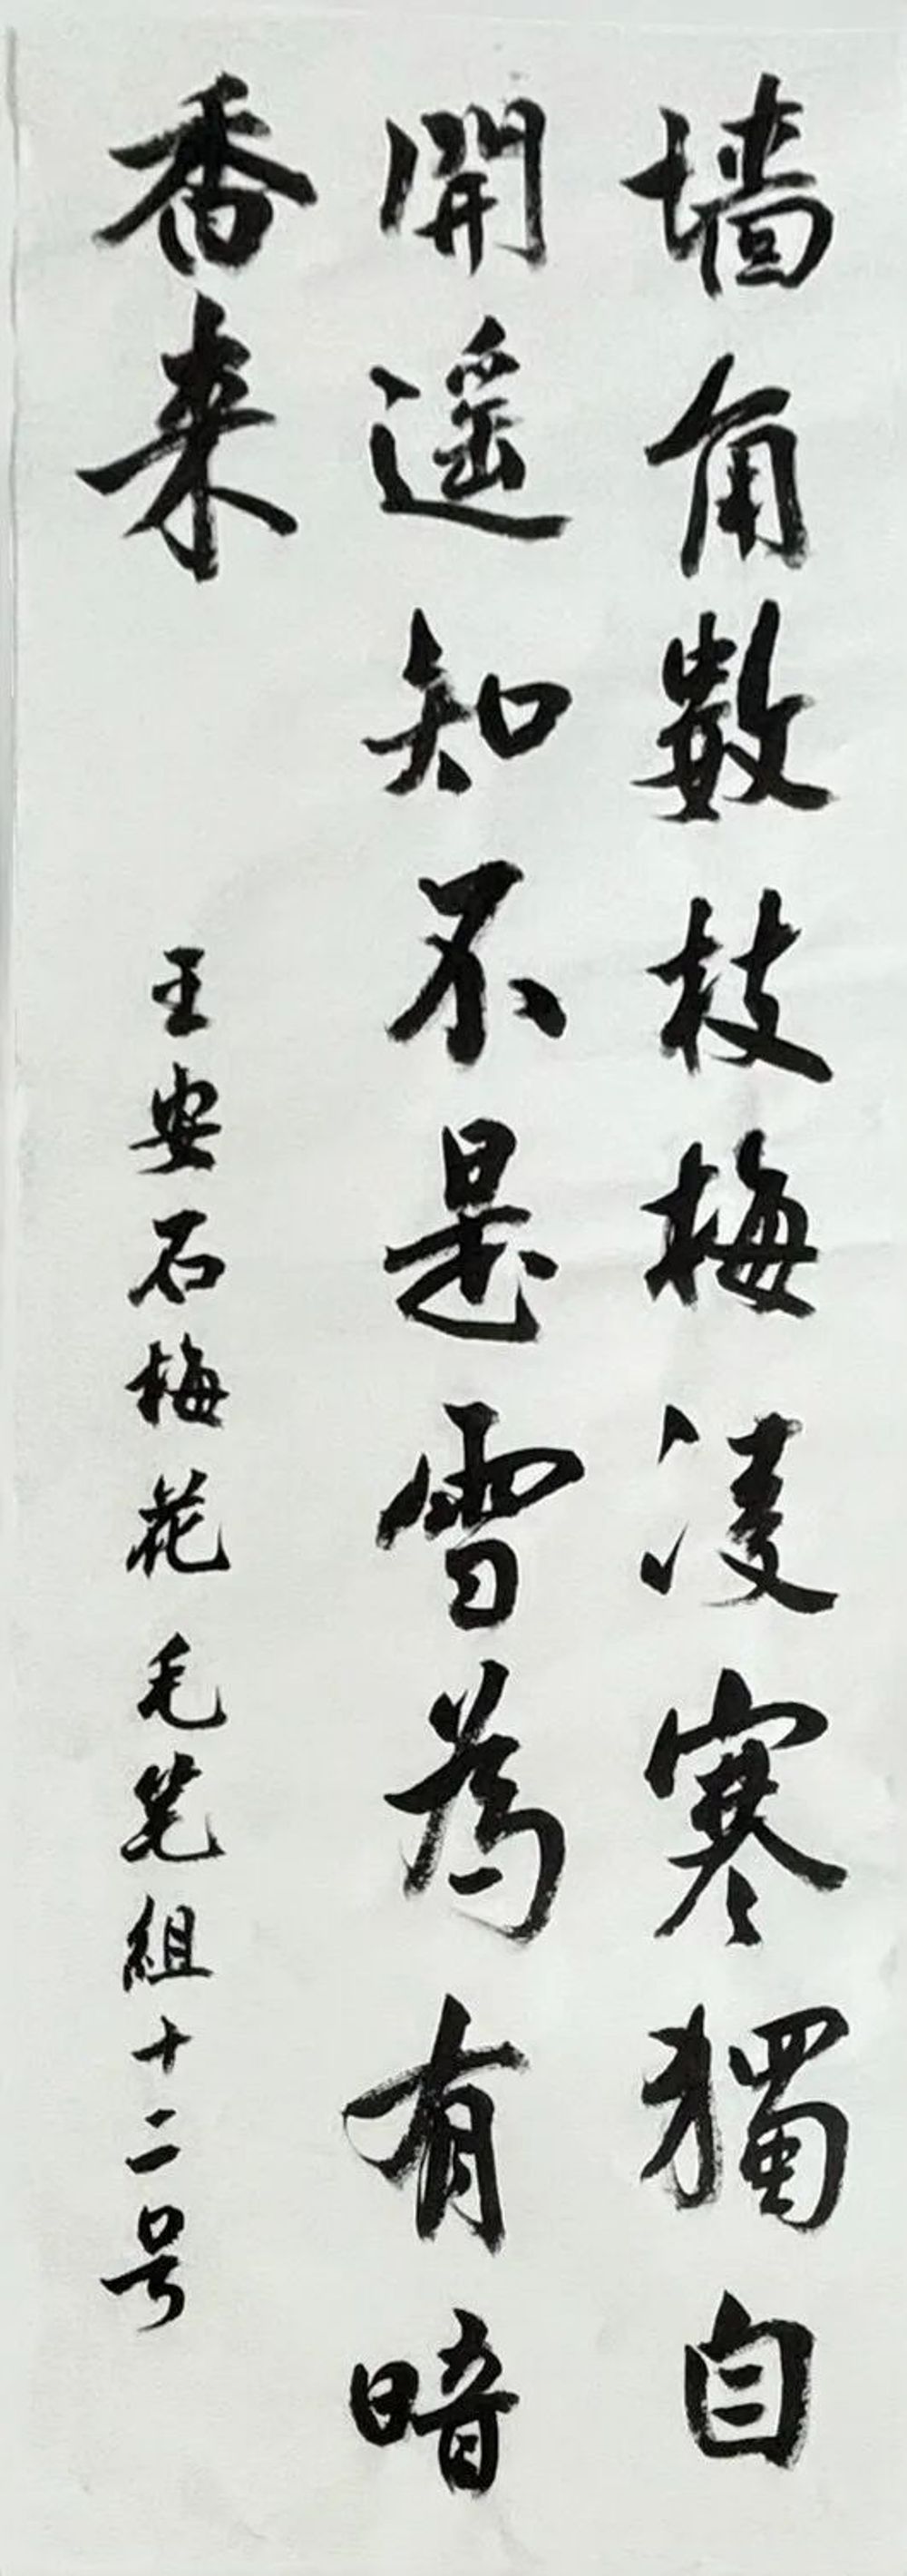 墙角數枝梅凌寒獨自
開遥知不是雪為有暗
香来
王安石梅花毛笔組十二号